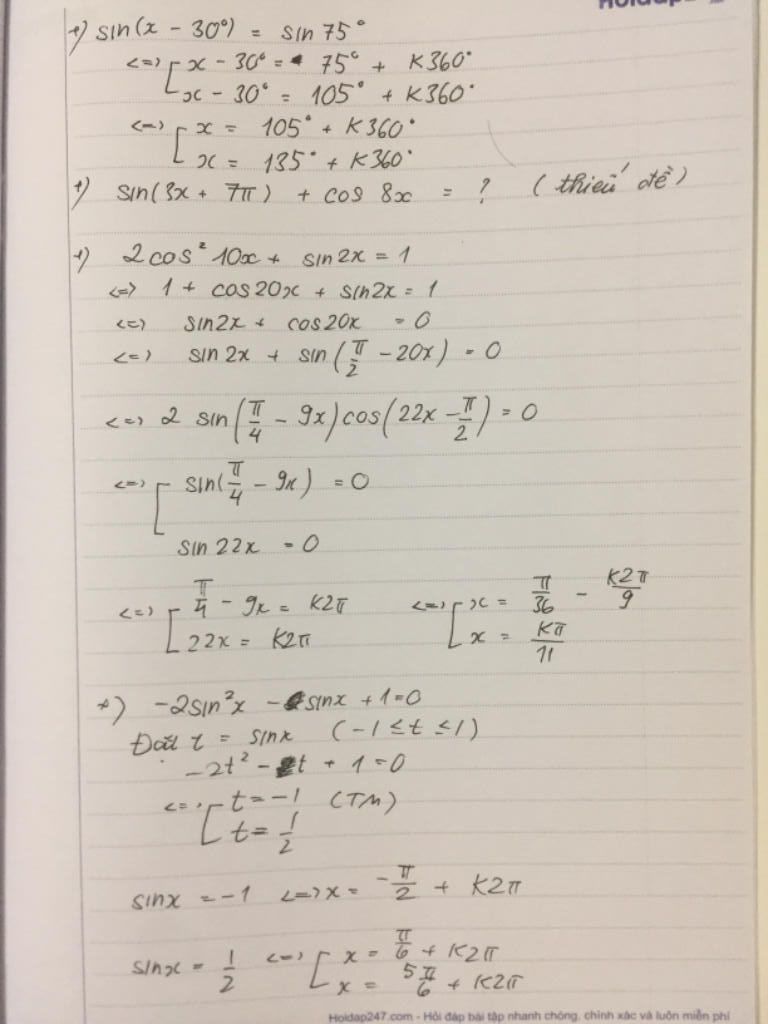 Hoidap2
+) sin(x - 30°) = sin 75°
<=> [ x - 30° = 75° + K360°
x - 30° = 105° + K360°
<=> [ x = 105° + K360°
x = 135° + K360°
+) sin(3x + 7π) + cos 8x = ? (thiếu đề)
+) 2cos² 10x + sin2x = 1
<=> 1 + cos20x + sin2x = 1
<=> sin2x + cos20x = 0
<=> sin2x + sin(π/2 - 20x) = 0
<=> 2 sin(π/4 - 9x)cos(22x - π/2) = 0
<=> [ sin(π/4 - 9x) = 0
sin 22x = 0
<=> [ π/4 - 9x = K2π <=> [ x = π/36 - K2π/9
22x = K2π x = Kπ/11
+) -2sin²x - sinx + 1=0
Đặt t = sinx (-1 ≤ t ≤ 1)
-2t² - t + 1=0
<=> [ t = -1 (TM)
t = 1/2
sinx = -1 <=> x = -π/2 + K2π
sinx = 1/2 <=> [ x = π/6 + K2π
x = 5π/6 + K2π
Hoidap247.com - Hỏi đáp bài tập nhanh chóng, chính xác và luôn miễn phí